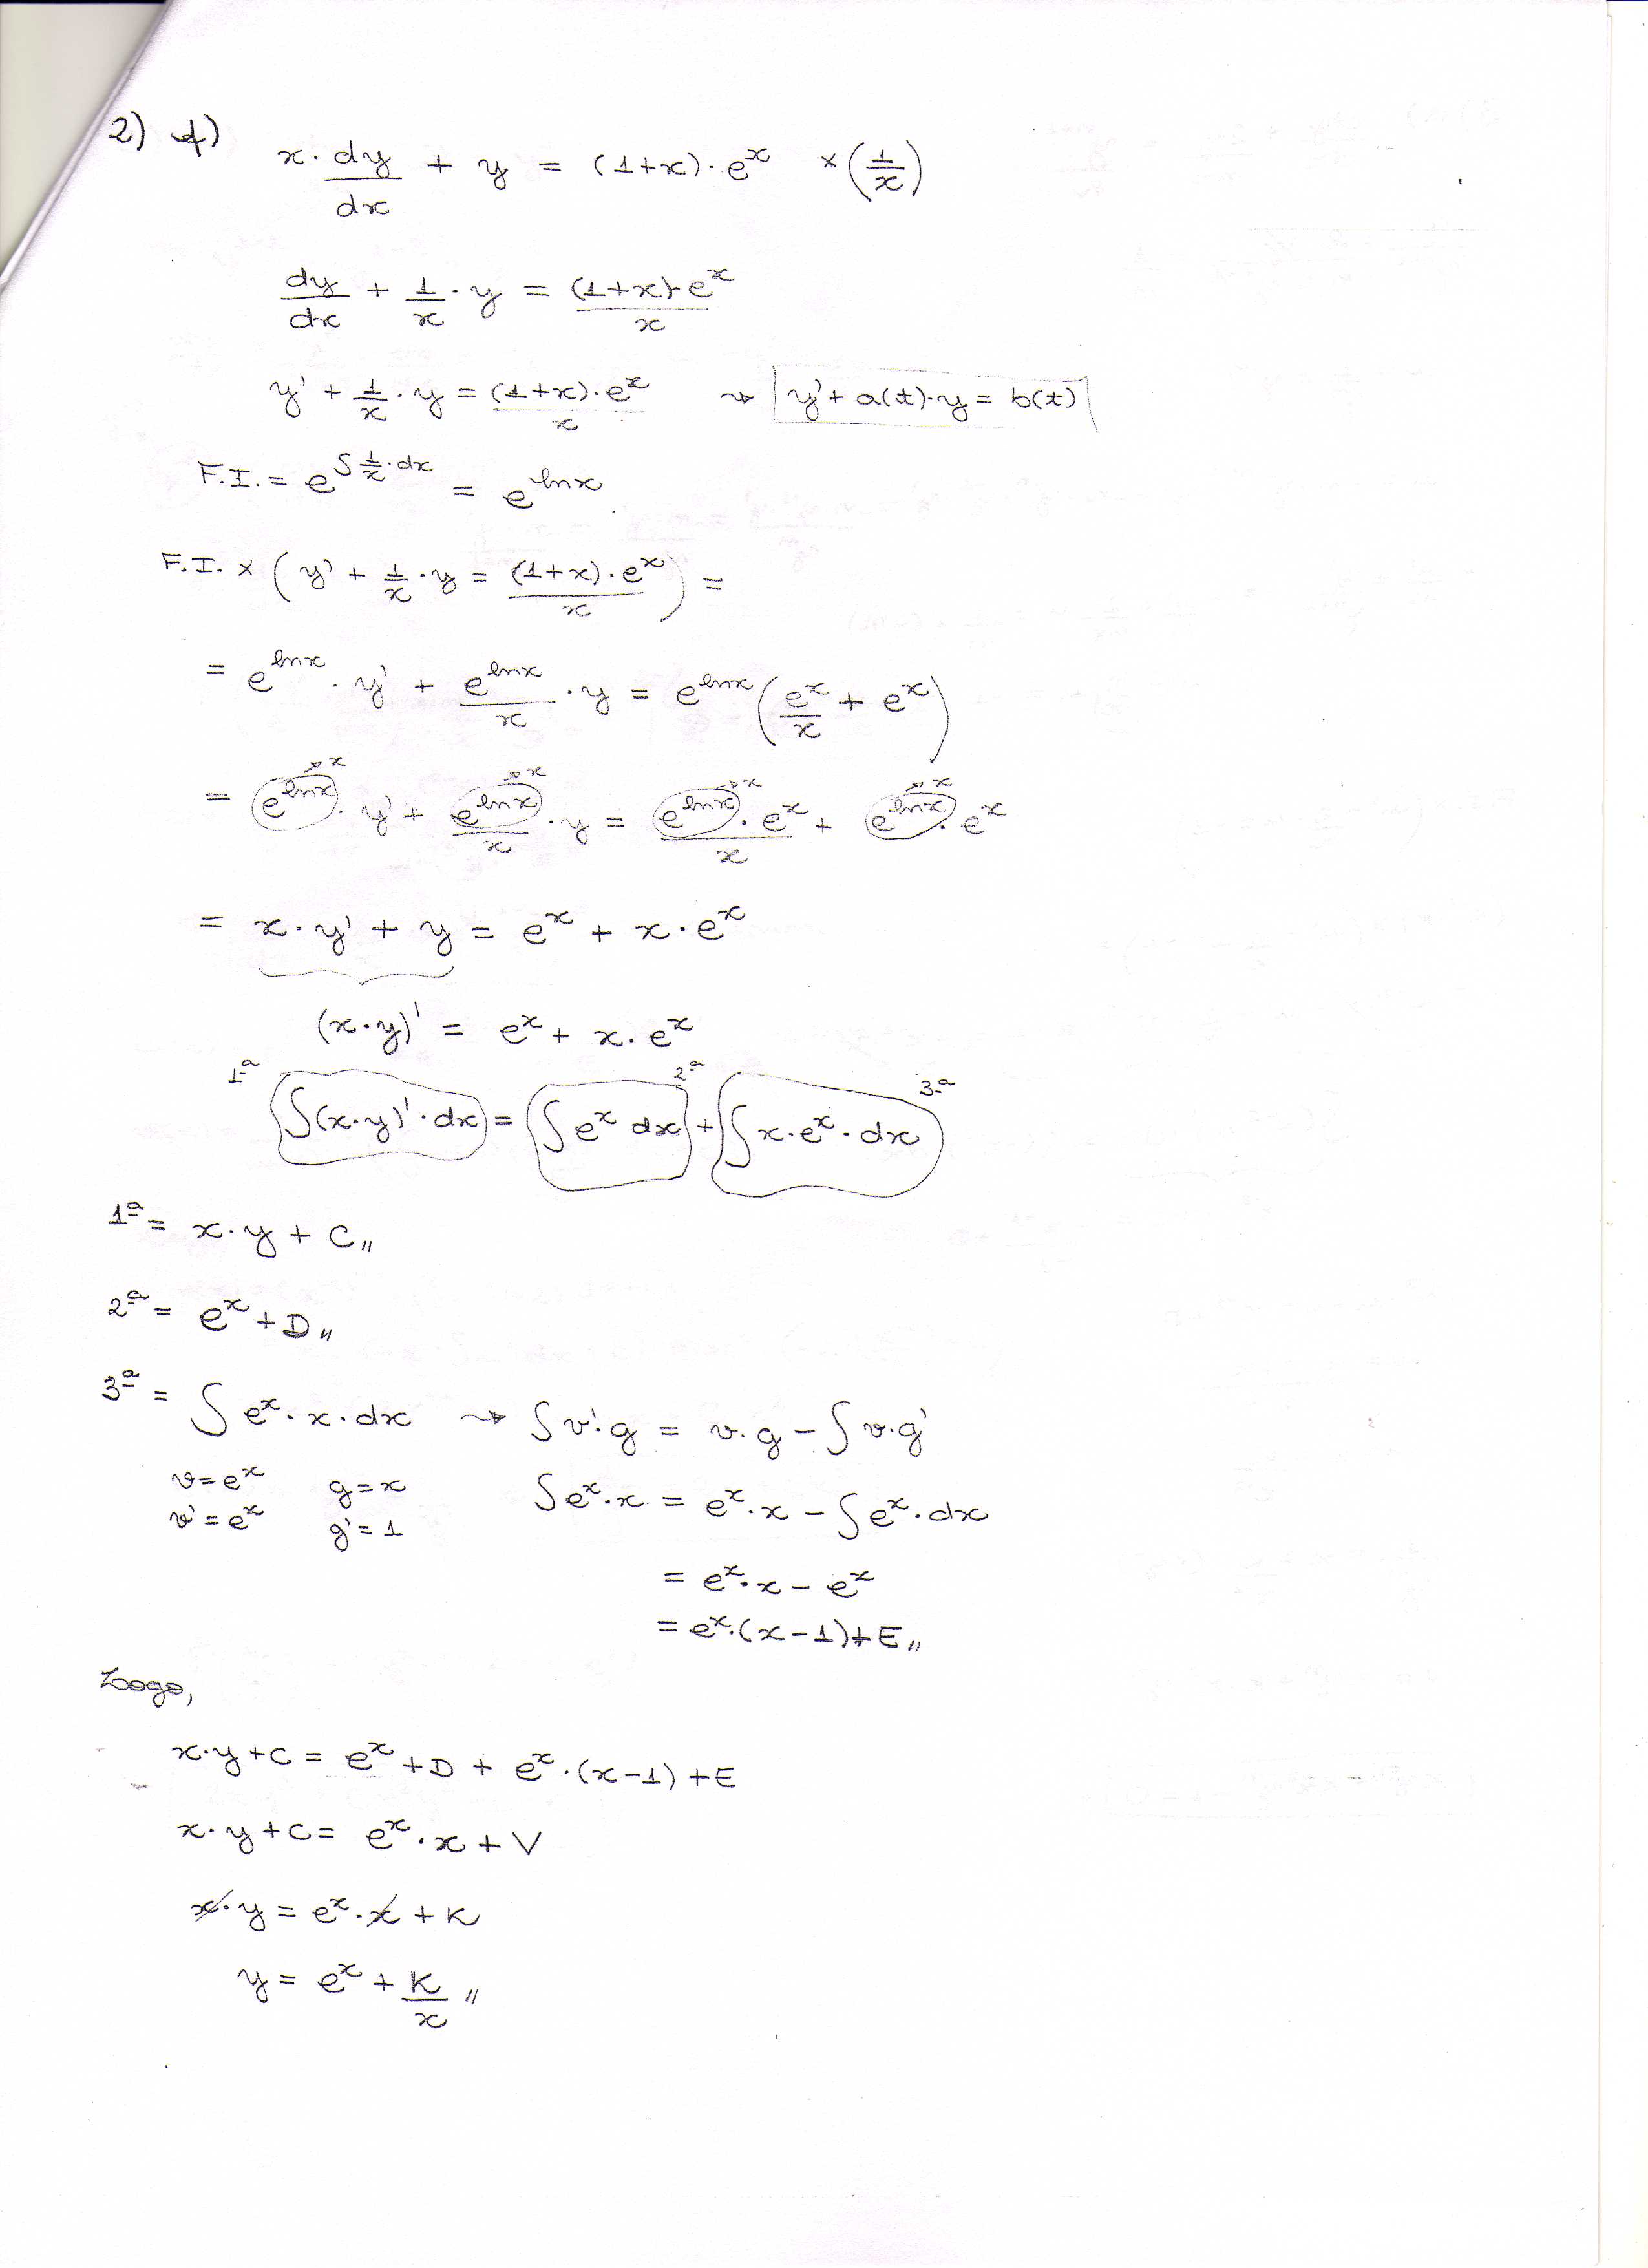 2) f) x · dy/dx + y = (1+x) · e^x × (1/x)
dy/dx + 1/x · y = (1+x) · e^x / x
y' + 1/x · y = (1+x) · e^x / x ⇝ y' + a(t) · y = b(t)
F.I. = e^∫ 1/x · dx = e^lnx
F.I. × ( y' + 1/x · y = (1+x) · e^x / x ) =
= e^lnx · y' + e^lnx / x · y = e^lnx ( e^x / x + e^x )
= e^lnx →x · y' + e^lnx →x / x · y = e^lnx →x · e^x / x + e^lnx →x · e^x
= x · y' + y = e^x + x · e^x
(x · y)' = e^x + x · e^x
1ª ∫(x · y)' · dx = ∫ e^x dx 2ª + ∫ x · e^x · dx 3ª
1ª = x · y + C,,
2ª = e^x + D,,
3ª = ∫ e^x · x · dx ⇝ ∫ v' · g = v · g − ∫ v · g'
v = e^x g = x ∫ e^x · x = e^x · x − ∫ e^x · dx
v' = e^x g' = 1
= e^x · x − e^x
= e^x · (x − 1) + E,,
Logo,
x · y + C = e^x + D + e^x · (x − 1) + E
x · y + C = e^x · x + V
x · y = e^x · x + K
y = e^x + K/x ,,